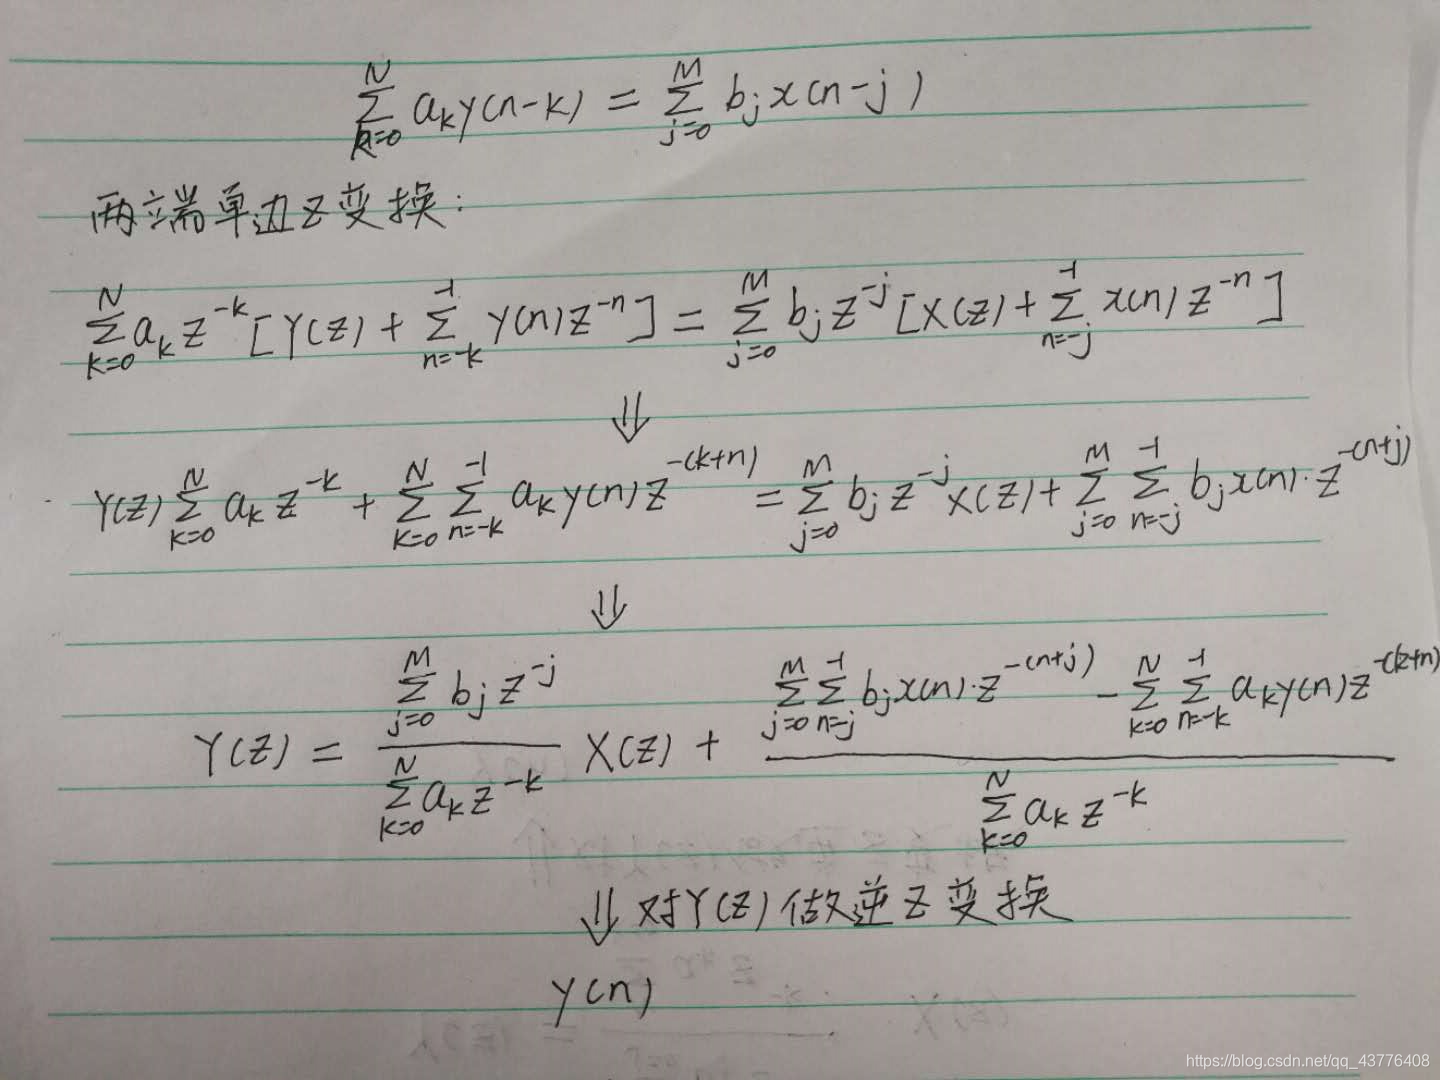 $\sum_{k=0}^{N} a_k y(n-k) = \sum_{j=0}^{M} b_j x(n-j)$
两立端单边Z变换:
$\sum_{k=0}^{N} a_k z^{-k} [Y(z) + \sum_{n=-k}^{-1} y(n) z^{-n}] = \sum_{j=0}^{M} b_j z^{-j} [X(z) + \sum_{n=-j}^{-1} x(n) z^{-n}]$
⇓
$Y(z) \sum_{k=0}^{N} a_k z^{-k} + \sum_{k=0}^{N} \sum_{n=-k}^{-1} a_k y(n) z^{-(k+n)} = \sum_{j=0}^{M} b_j z^{-j} X(z) + \sum_{j=0}^{M} \sum_{n=-j}^{-1} b_j x(n) \cdot z^{-(n+j)}$
⇓
$Y(z) = \frac{\sum_{j=0}^{M} b_j z^{-j}}{\sum_{k=0}^{N} a_k z^{-k}} X(z) + \frac{\sum_{j=0}^{M} \sum_{n=-j}^{-1} b_j x(n) \cdot z^{-(n+j)} - \sum_{k=0}^{N} \sum_{n=-k}^{-1} a_k y(n) z^{-(k+n)}}{\sum_{k=0}^{N} a_k z^{-k}}$
⇓ 对Y(z)做逆Z变换
y(n)
https://blog.csdn.net/qq_43776408